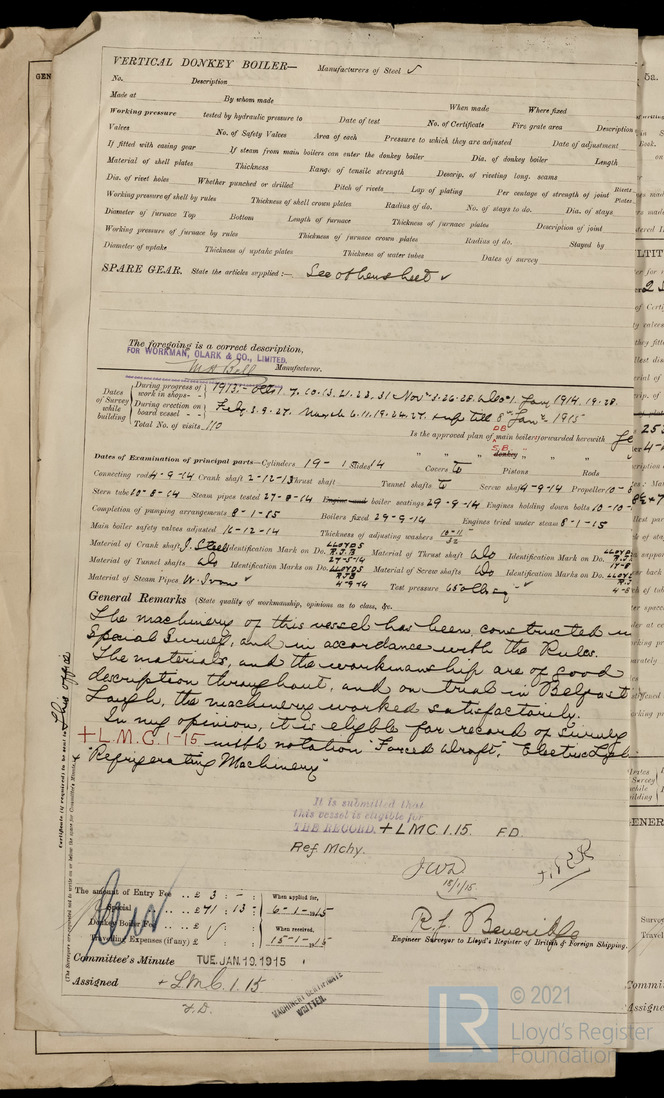 VERTICAL DONKEY BOILER— Manufacturers of Steel ✓
No. Description
Made at By whom made When made Where fixed
Working pressure tested by hydraulic pressure to Date of test No. of Certificate Fire grate area Description
Valves No. of Safety Valves Area of each Pressure to which they are adjusted Date of adjustment
If fitted with easing gear If steam from main boilers can enter the donkey boiler Dia. of donkey boiler Length
Material of shell plates Thickness Range of tensile strength Descrip. of riveting long. seams
Dia. of rivet holes Whether punched or drilled Pitch of rivets Lap of plating Per centage of strength of joint Rivets Plates
Working pressure of shell by rules Thickness of shell crown plates Radius of do. No. of stays to do. Dia. of stays
Diameter of furnace Top Bottom Length of furnace Thickness of furnace plates Description of joint
Working pressure of furnace by rules Thickness of furnace crown plates Radius of do. Stayed by
Diameter of uptake Thickness of uptake plates Thickness of water tubes Dates of survey
SPARE GEAR. State the articles supplied :— See other sheet ✓
The foregoing is a correct description,
FOR WORKMAN, CLARK & CO., LIMITED.
Manufacturer.
Dates of Survey while building
During progress of work in shops - - 1913:- Oct 1. 7. 10. 13. 21. 23. 31 Nov 5. 26. 28. Jan 1914. 19. 28.
During erection on board vessel - - Feby 3. 9. 27. March 6. 11. 19. 24. 27. till 8th Jany 1915
Total No. of visits 110
Is the approved plan of main boiler forwarded herewith
DB
S.B.
" " " donkey " " "
Dates of Examination of principal parts—Cylinders Slides Covers Pistons Rods
Connecting rods 4-9-14 Crank shaft 2-12-13 Thrust shaft Tunnel shafts Screw shaft 4-9-14 Propeller
Stern tube 10-8-14 Steam pipes tested 27-8-14 Engine and boiler seatings 29-9-14 Engines holding down bolts
Completion of pumping arrangements 8-1-15 Boilers fixed 29-9-14 Engines tried under steam 8-1-15
Main boiler safety valves adjusted 16-12-14 Thickness of adjusting washers
Material of Crank shaft I. Steel Identification Mark on Do. LLOYDS R.J.B 27-5-14 Material of Thrust shaft do Identification Mark on Do.
Material of Tunnel shafts do Identification Marks on Do. LLOYDS RJB 4-9-14 Material of Screw shafts do Identification Marks on Do.
Material of Steam Pipes W. Iron ✓ Test pressure ✓
General Remarks (State quality of workmanship, opinions as to class, &c.
The machinery of this vessel has been constructed under
Special Survey, and in accordance with the Rules.
The materials, and the workmanship are of good
description throughout, and on trial in Belfast
Lough, the machinery worked satisfactorily.
In my opinion, it is eligible for record of Survey
+ L.M.C. 1-15 with notation "Forced draft," "Electric Light"
"Refrigerating Machinery"
It is submitted that
this vessel is eligible for
THE RECORD. + LMC 1.15 F.D.
Ref Mchy.
18/1/15
The amount of Entry Fee .. £ 3 : - : When applied for,
Special .. £71 : 13 : 6-1-1915
Donkey Boiler Fee .. £ When received,
Travelling Expenses (if any) £ 15-1-1915
R. J. Beveridge
Engineer Surveyor to Lloyd's Register of British & Foreign Shipping.
Committee's Minute TUE. JAN. 19. 1915
Assigned + LMC. 1. 15
F.D.
MACHINERY CERTIFICATE WRITTEN.
This office
© 2021
Lloyd's Register
Foundation
LR